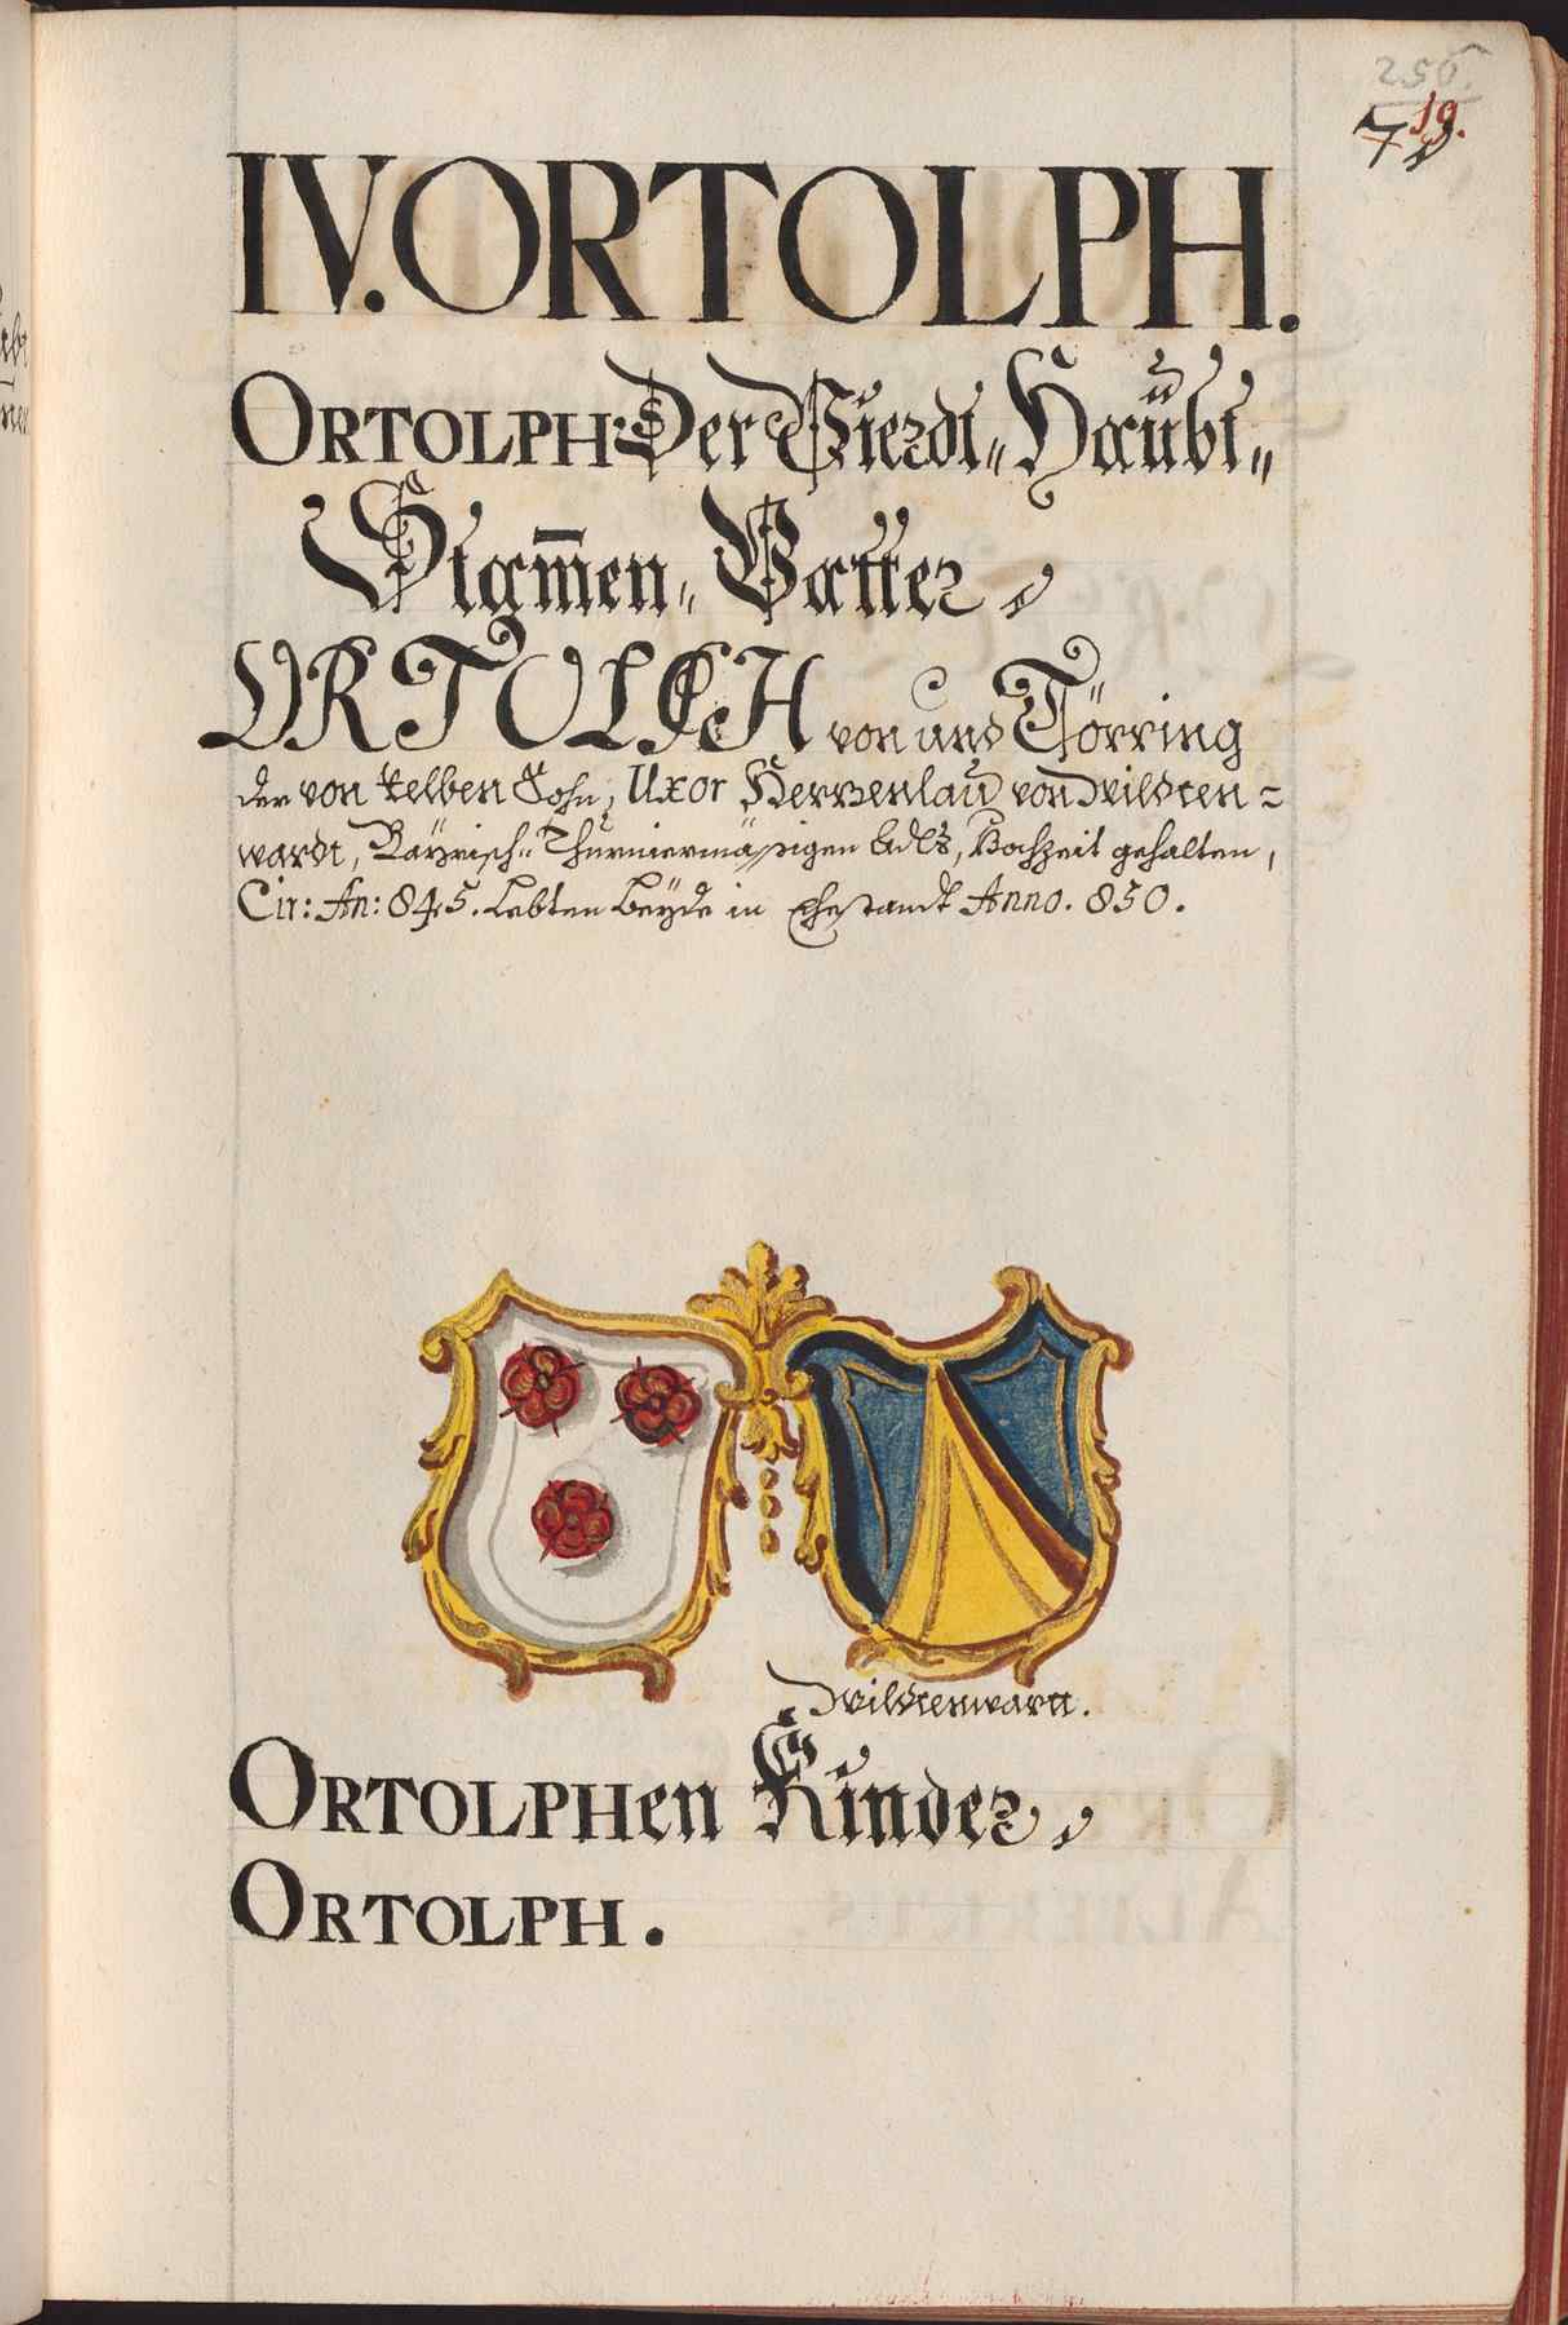 256.
19.
IV. ORTOLPH.
ORTOLPH. Der Vierdt„ Haubt„
Stam̅en„ Vatter
ORTOLPH von und Törring
der von Selben Sohn, Uxor von Wildten=
wardt, Bayrisch„ Thurniermäßigen Adls, Hochzeit gehalten,
Cir: An: 845. Lebten beyde in Ehestandt Anno. 850.
Wildtenwartt.
ORTOLPHen Kinder
ORTOLPH.